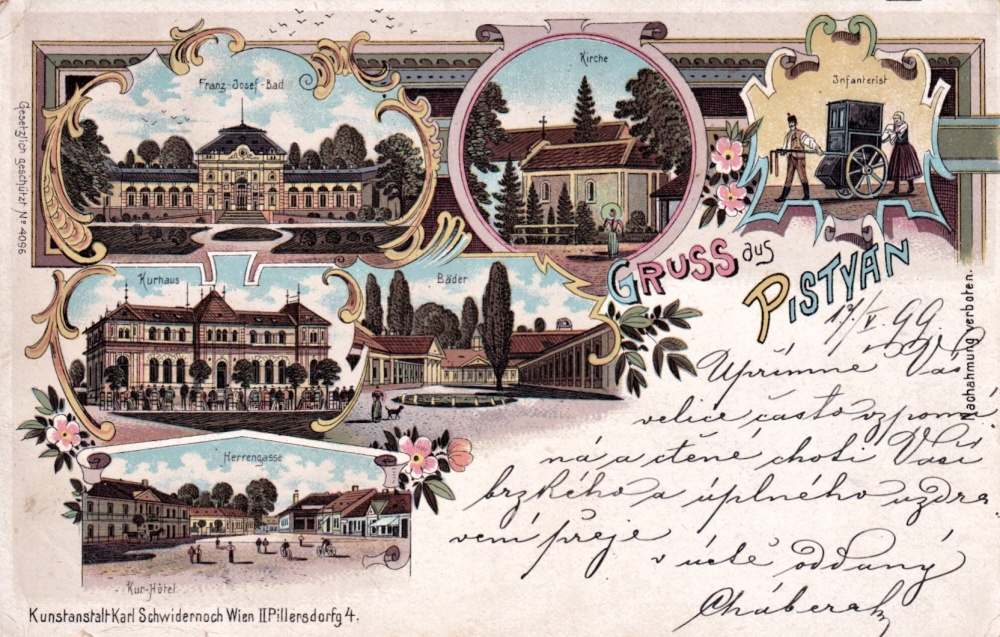 Franz-Josef-Bad
Kirche
Infanterist
Gesetzlich geschützt No 4096
Kurhaus
Bäder
GRUSS aus
PISTYAN
Nachahmung verboten.
17/V. 99.
Upřímně Vás
velice často vzpomí
ná a ctěné choti Vaší
brzkého a úplného uzdra
vení přeje
v úctě oddaný
Herrengasse
Kur-Hôtel
Kunstanstalt Karl Schwidernoch Wien II Pillersdorfg 4.